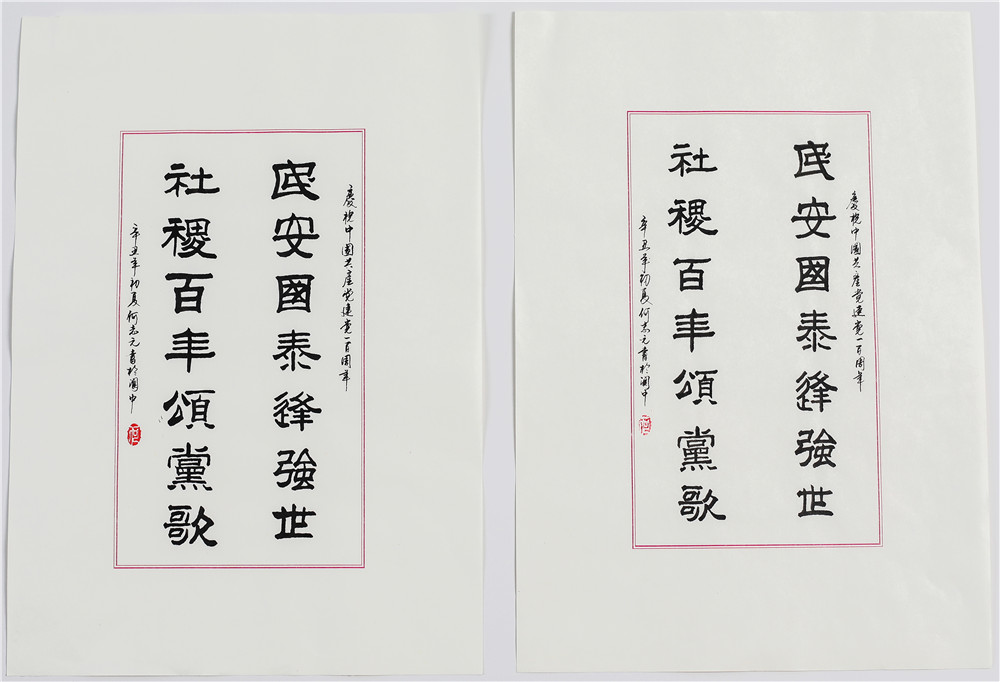 慶祝中國共産党建党一百周年
民安國泰逢強世
社稷百年頌黨歌
辛丑年初夏何志元書於闽中
慶祝中國共産党建党一百周年
民安國泰逢強世
社稷百年頌黨歌
辛丑年初夏何志元書於闽中